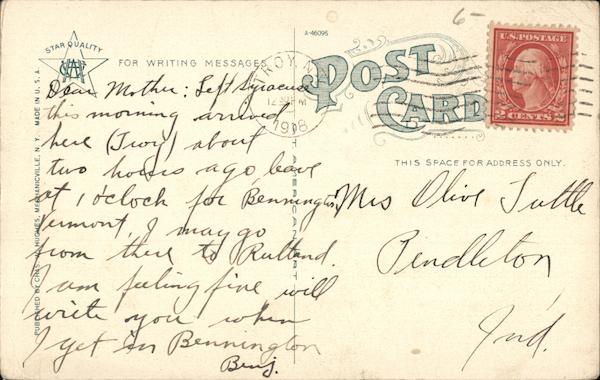 STAR QUALITY
FOR WRITING MESSAGES
A-46095
POST
CARD
THIS SPACE FOR ADDRESS ONLY.
TROY, N.
12
PM
1918
U.S. POSTAGE
2 CENTS 2
6-
PUBLISHED BY CHAS. W. HUGHES, MECHANICVILLE, N. Y.
MADE IN U. S. A.
Dear Mother: Left Syracuse
this morning arrived
here (Troy) about
two hours ago leave
at 1 o'clock for Bennington
Vermont, I may go
from there to Rutland.
I am feeling fine will
write you when
I get in Bennington
Benj.
Mrs Olive Tuttle
Pendleton,
Ind.